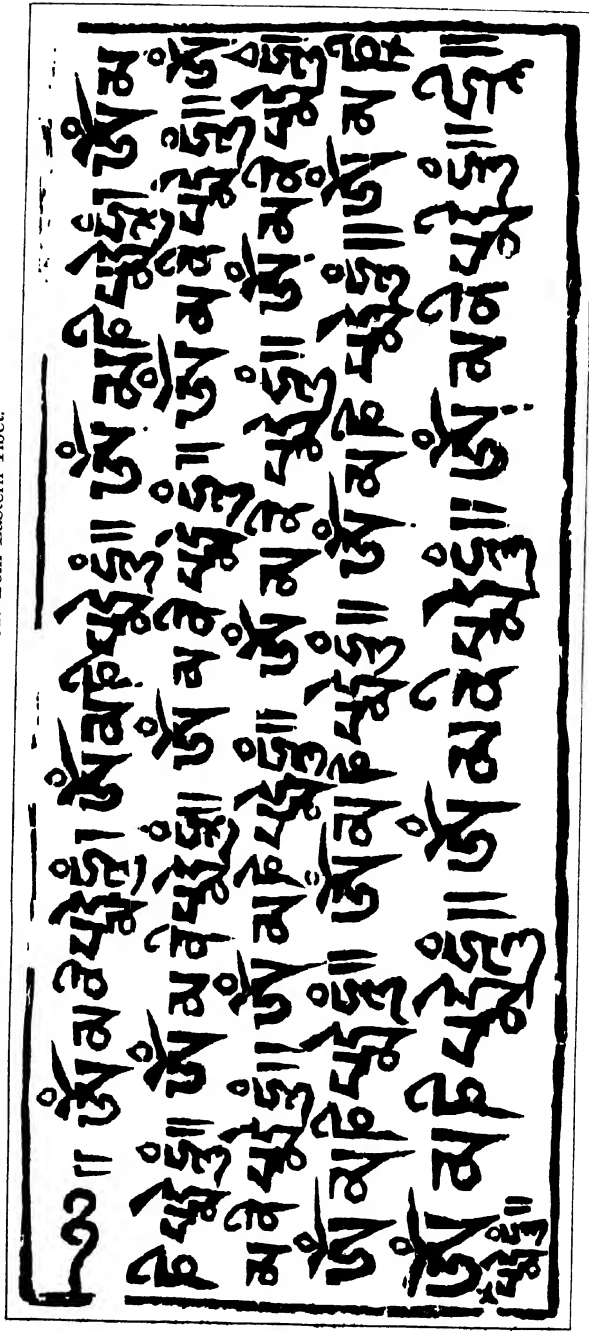 Eastern Tibet.
༄ ༎ ཨོཾ མ ཎི པདྨེ ཧཱུཾ། ཨོཾ མ ཎི པདྨེ ཧཱུཾ༎ ཨོཾ མ ཎི པདྨེ ཧཱུཾ། ཨོཾ མ
ཎི པདྨེ ཧཱུཾ༎ ཨོཾ མ ཎི པདྨེ ཧཱུཾ༎ ཨོཾ མ ཎི པདྨེ ཧཱུཾ༎ ཨོཾ མ ཎི པདྨེ ཧཱུཾ༎ ཨོཾ
མ ཎི པདྨེ ཧཱུཾ༎ ཨོཾ མ ཎི པདྨེ ཧཱུཾ༎ ཨོཾ མ ཎི པདྨེ ཧཱུཾ༎ ཨོཾ མ ཎི པདྨེ ཧཱུཾ
ཨོཾ མ ཎི པདྨེ ཧཱུཾ༎ ཨོཾ མ ཎི པདྨེ ཧཱུཾ༎ ཨོཾ མ ཎི པདྨེ ཧཱུཾ༎ ཨོཾ མ ཎི
ཨོཾ མ ཎི པདྨེ ཧཱུཾ༎ ཨོཾ མ ཎི པདྨེ ཧཱུཾ༎ ཨོཾ མ ཎི པདྨེ ཧཱུཾ༎ ཧྲཱི༎
པདྨེ ཧཱུཾ༎